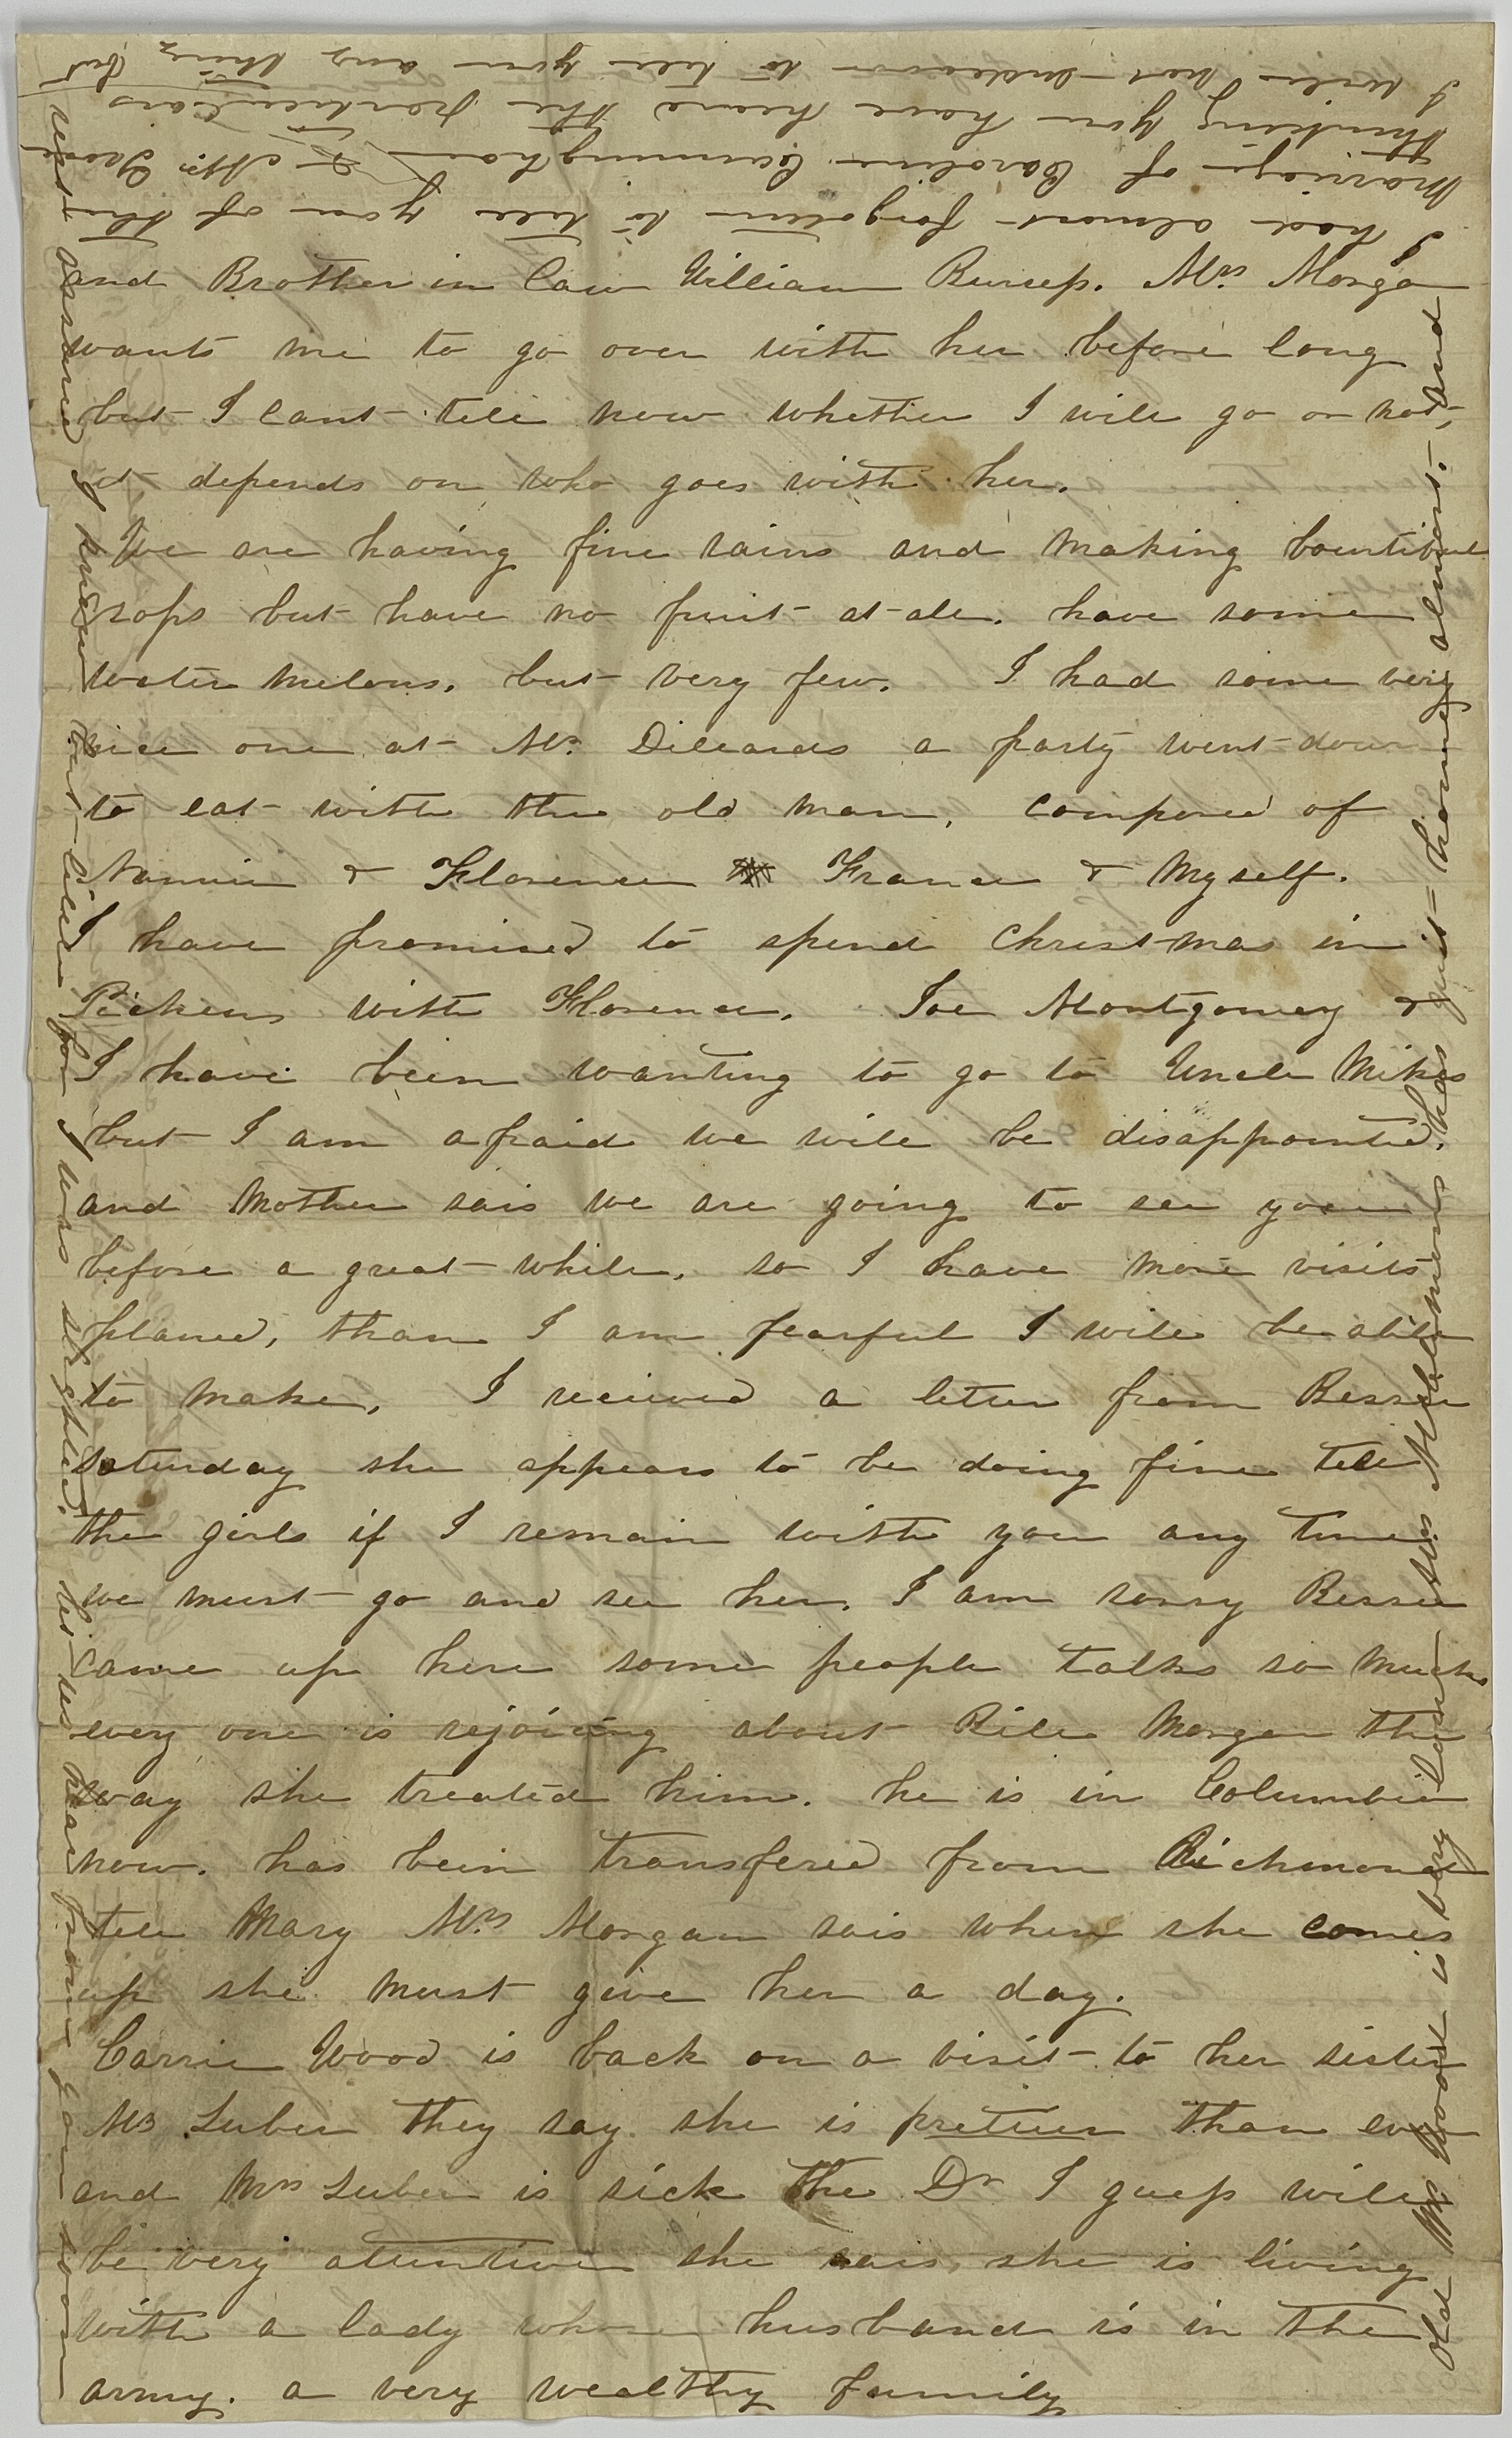 and Brother in law William Burress. Mrs Morgan
wants me to go over with her before long
but I cant tell now whether I will go or not,
it depends on who goes with her.
We are having fine rains and making bountiful
crops but have no fruit at all. have some
water melons. but very few. I had some very
nice one at Mr Dillards a party went down
to eat with the old man, composed of
Nannie & Florence France & Myself.
I have promised to spend Christmas in
Pickens with Florence. Joe Montgomery &
I have been wanting to go to Uncle Mikes
but I am afraid we will be disappointed.
and Mother sais we are going to see you
before a great while. so I have more visits
planed, than I am fearful I will be able
to make. I recieved a letter from Bessie
saturday she appears to be doing fine tell
the girls if I remain with you any time
we must go and see her. I am sorry Bessie
came up here some people talks so much
every one is rejoicing about Bile Morgan the
way she treated him. he is in Columbia
now. has been transfered from Richmond
tell Mary Mrs Morgan sais when she comes
up she must give her a day.
Carrie Wood is back on a visit to her sister
Mrs Luber they say she is prettier than ever
and Mrs Luber is sick the Dr I guess will
be very attentive she sais she is living
with a lady whose husband is in the
army. a very wealthy family
Old Mr Wood is very low Mrs McClemons has quit home almost. and
I had almost forgotten to tell you of the
Marriage of Caroline Cunningham & Mr
thinking you have heard the particulars
I will not endeavor to tell you any thing but
rest assured I knew not all for I was slighted. let us hear from you soon